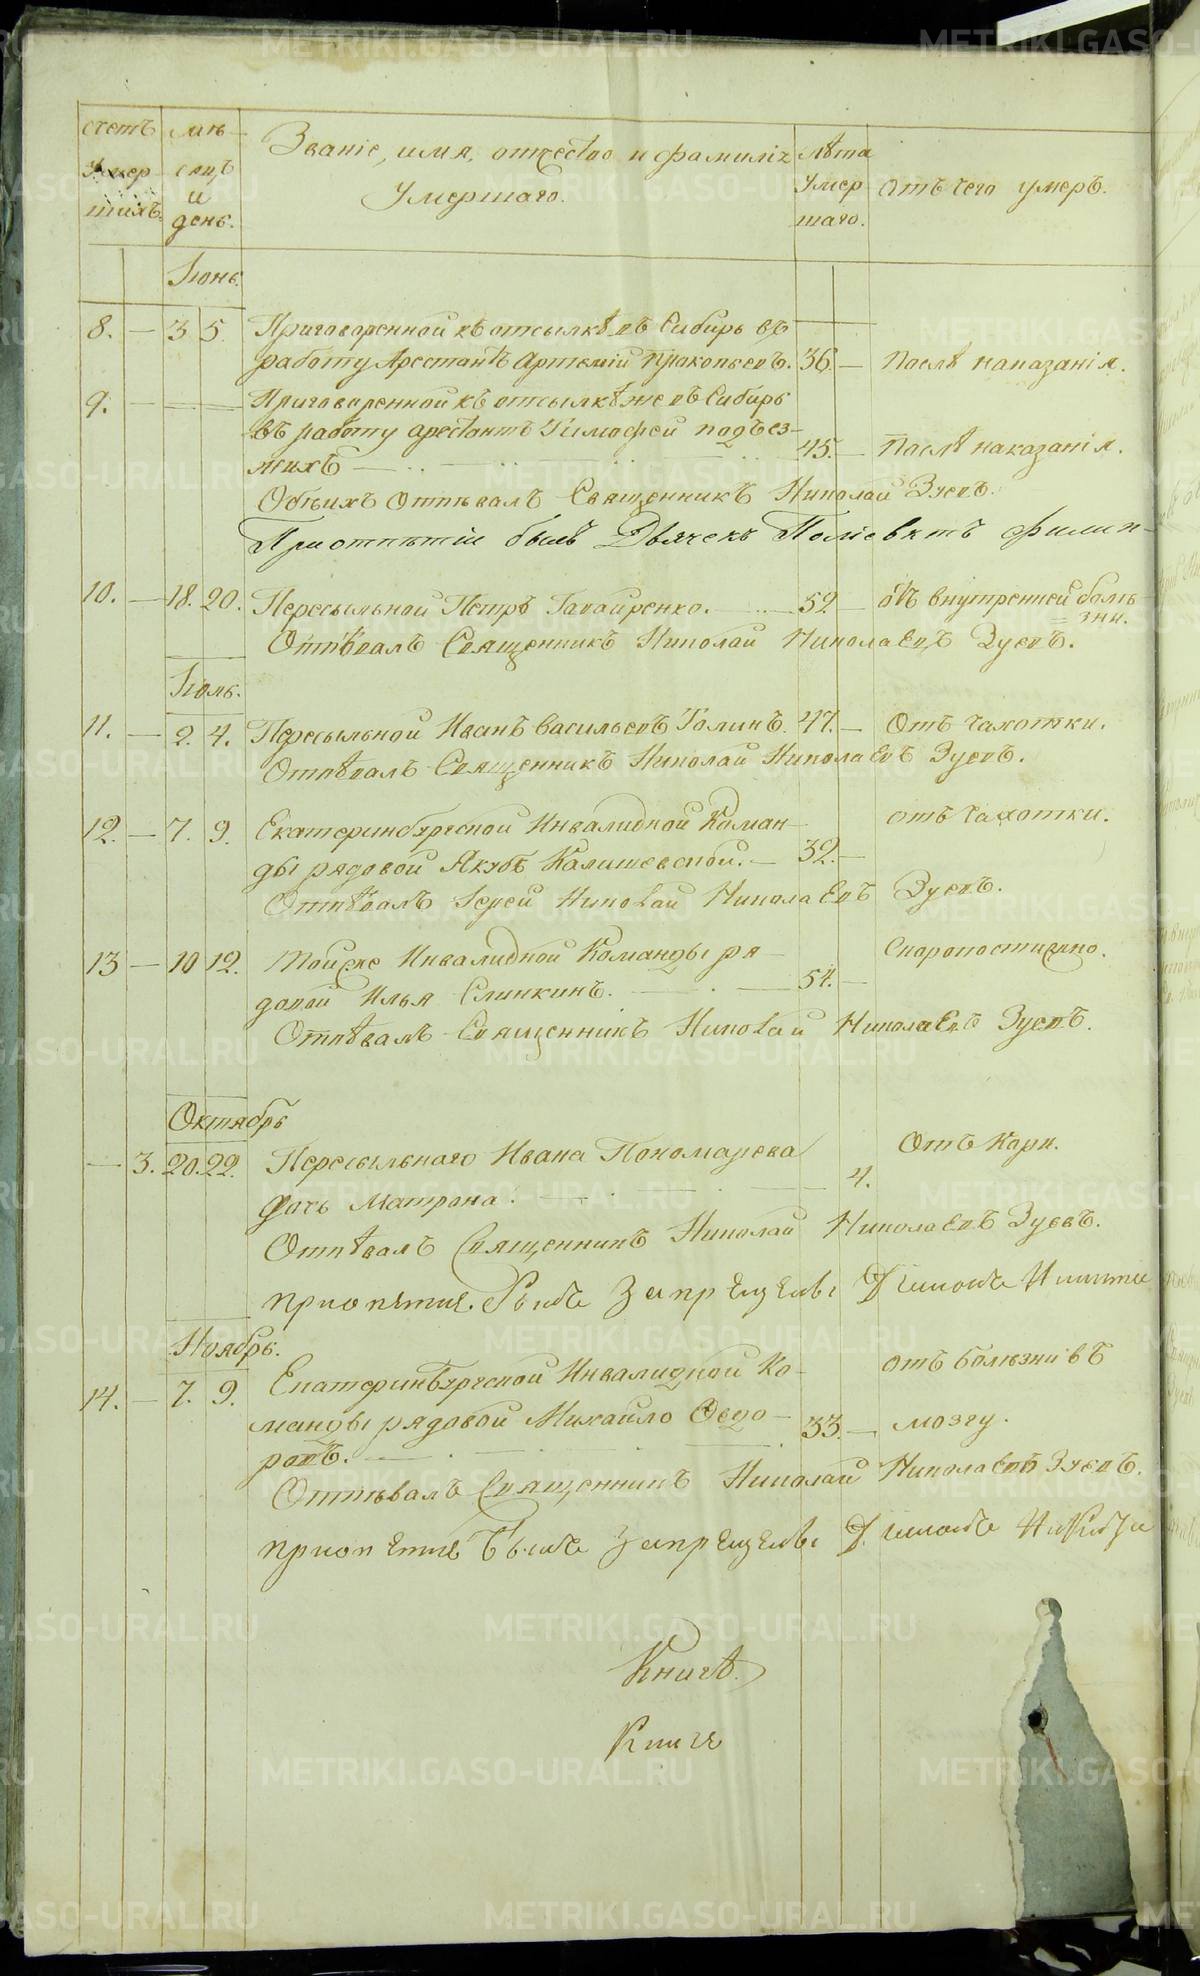 счетъ умер тихъ
мѣсяцъ и день.
Званіе, имя, отчество и фамилія умершаго.
Лѣта умершаго.
Отъ чего умеръ.
Іюнь.
8. — 3 5 Приговоренной къ отсылкѣ въ Сибирь въ
работу Арестантъ Артемій Прокопьевъ. 36. — Послѣ наказанія.
9. — Приговоренной къ отсылкѣ же въ Сибирь
въ работу арестантъ Тимофей подъез-
жихъ — 45. — Послѣ наказанія.
Обѣихъ отпѣвалъ Священникъ Николай Зуевъ.
При отпѣтіи былъ Дьячекъ Поліевктъ Филип-
10. — 18. 20. Пересыльной Петръ Гавайренко. — 52 — отъ внутренней болѣ
зни.
Отпѣвалъ Священникъ Николай Николаевъ Зуевъ.
Іюль.
11. — 2. 4. Пересыльной Иванъ Васильевъ Голинъ. 47. — Отъ чахотки.
Отпѣвалъ Священникъ Николай Николаевъ Зуевъ.
12. — 7. 9. Екатеринбургской Инвалидной Коман-
ды рядовой Якубъ Калишевской. — 32. — отъ чахотки.
Отпѣвалъ Іерей Николай Николаевъ Зуевъ.
13 — 10 12. Той же Инвалидной Команды ря-
довой Илья Слинкинъ. — 54. — Скоропостижно.
Отпѣвалъ Священникъ Николай Николаевъ Зуевъ.
Октябрь
— 3. 20. 22. Пересыльнаго Ивана Пономарева
дочь Матрона. — 4. Отъ Кори.
Отпѣвалъ Священникъ Николай Николаевъ Зуевъ.
Ноябрь.
14. — 7. 9. Екатеринбургской Инвалидной Ко-
манды рядовой Михайло Ѳедо-
ровъ. — 33. — отъ болѣзни въ
мозгу.
Отпѣвалъ Священникъ Николай Николаевъ Зуевъ.
Книга
Книга
METRIKI.GASO-URAL.RU